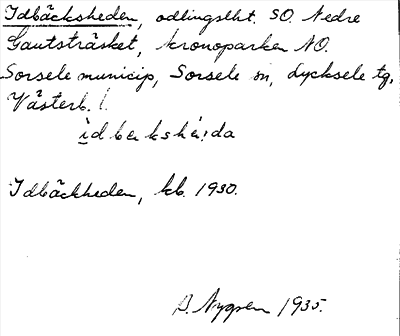 Idbäcksheden, odlingslht. SO. Nedre
Gautsträsket, kronoparken NO.
Sorsele municip, Sorsele sn, Lycksele tg,
Västerb. l.
ìdbɛkshé:da
Idbäckheden, kb. 1930.
B. Nygren 1935.